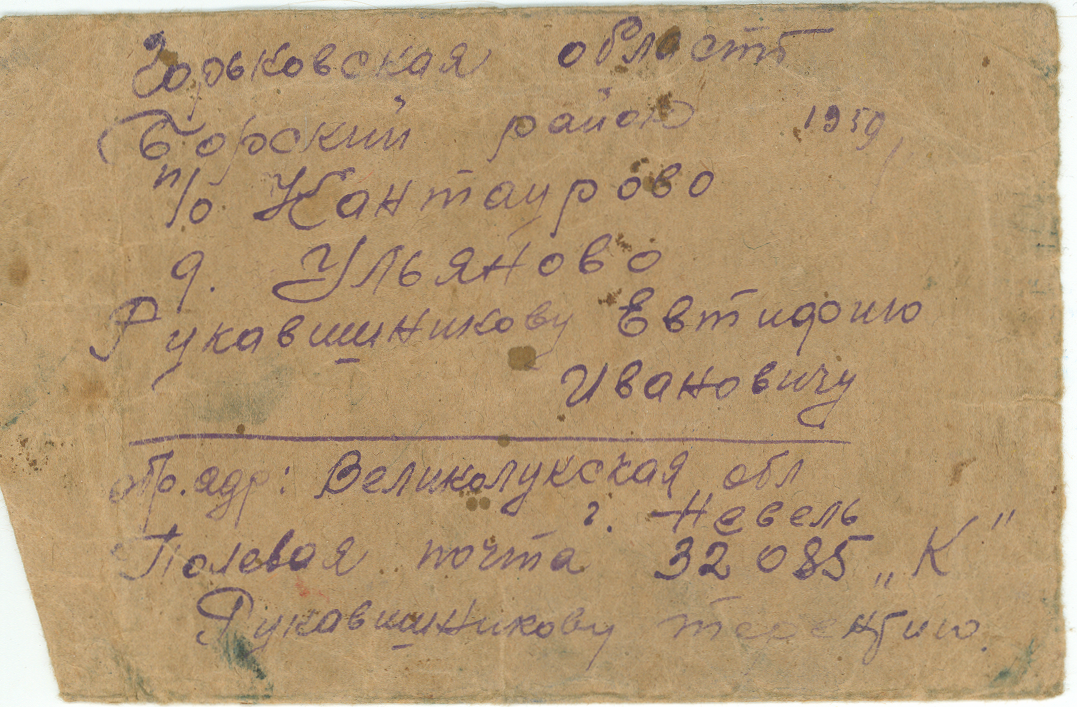 Горьковская область
Борский район 1950
п/о Кантаурово
д. Ульяново
Рукавишникову Евтифию
Ивановичу
обр. адр: Великолукская обл
г. Невель
Полевая почта 32085 „К"
Рукавишникову терентию